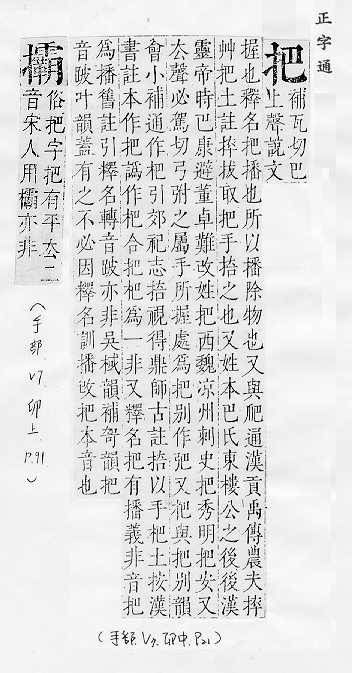 正字通
把 補瓦切巴
上聲說文
握也釋名把播也所以播除物也又與爬通漢貢禹傳農夫捽
艸把土註捽拔取把手掊之也又姓本巴氏東樓公之後後漢
靈帝時巴康避董卓難改姓把西魏凉州刺史把秀明把安又
去聲必駕切弓弣之屬手所握處為把別作弝又把與把別韻
會小補通作杷引郊祀志掊視得鼎師古註掊以手杷土按漢
書註本作把譌作杷合把杷為一非又釋名把有播義非音把
為播舊註引釋名轉音跛亦非吳棫韻補哿韻把
音跛叶韻蓋有之不必因釋名訓播改把本音也
𢺞 俗把字把有平去二
音宋人用𢺞亦非
(手部 V7 卯上 P.91)
(手部 V7 卯中 P.21)